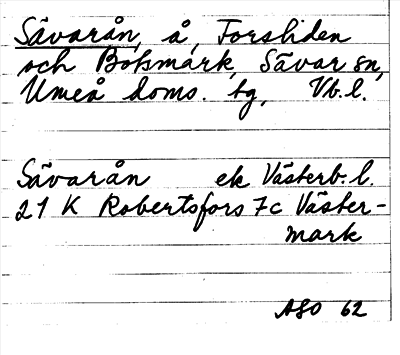 Sävarån, å, Forsliden
och Boksmark, Sävar sn,
Umeå doms. tg, Vb. l.
Sävarån ek Västerb. l.
21 K Robertsfors 7c Väster-
mark
ASO 62